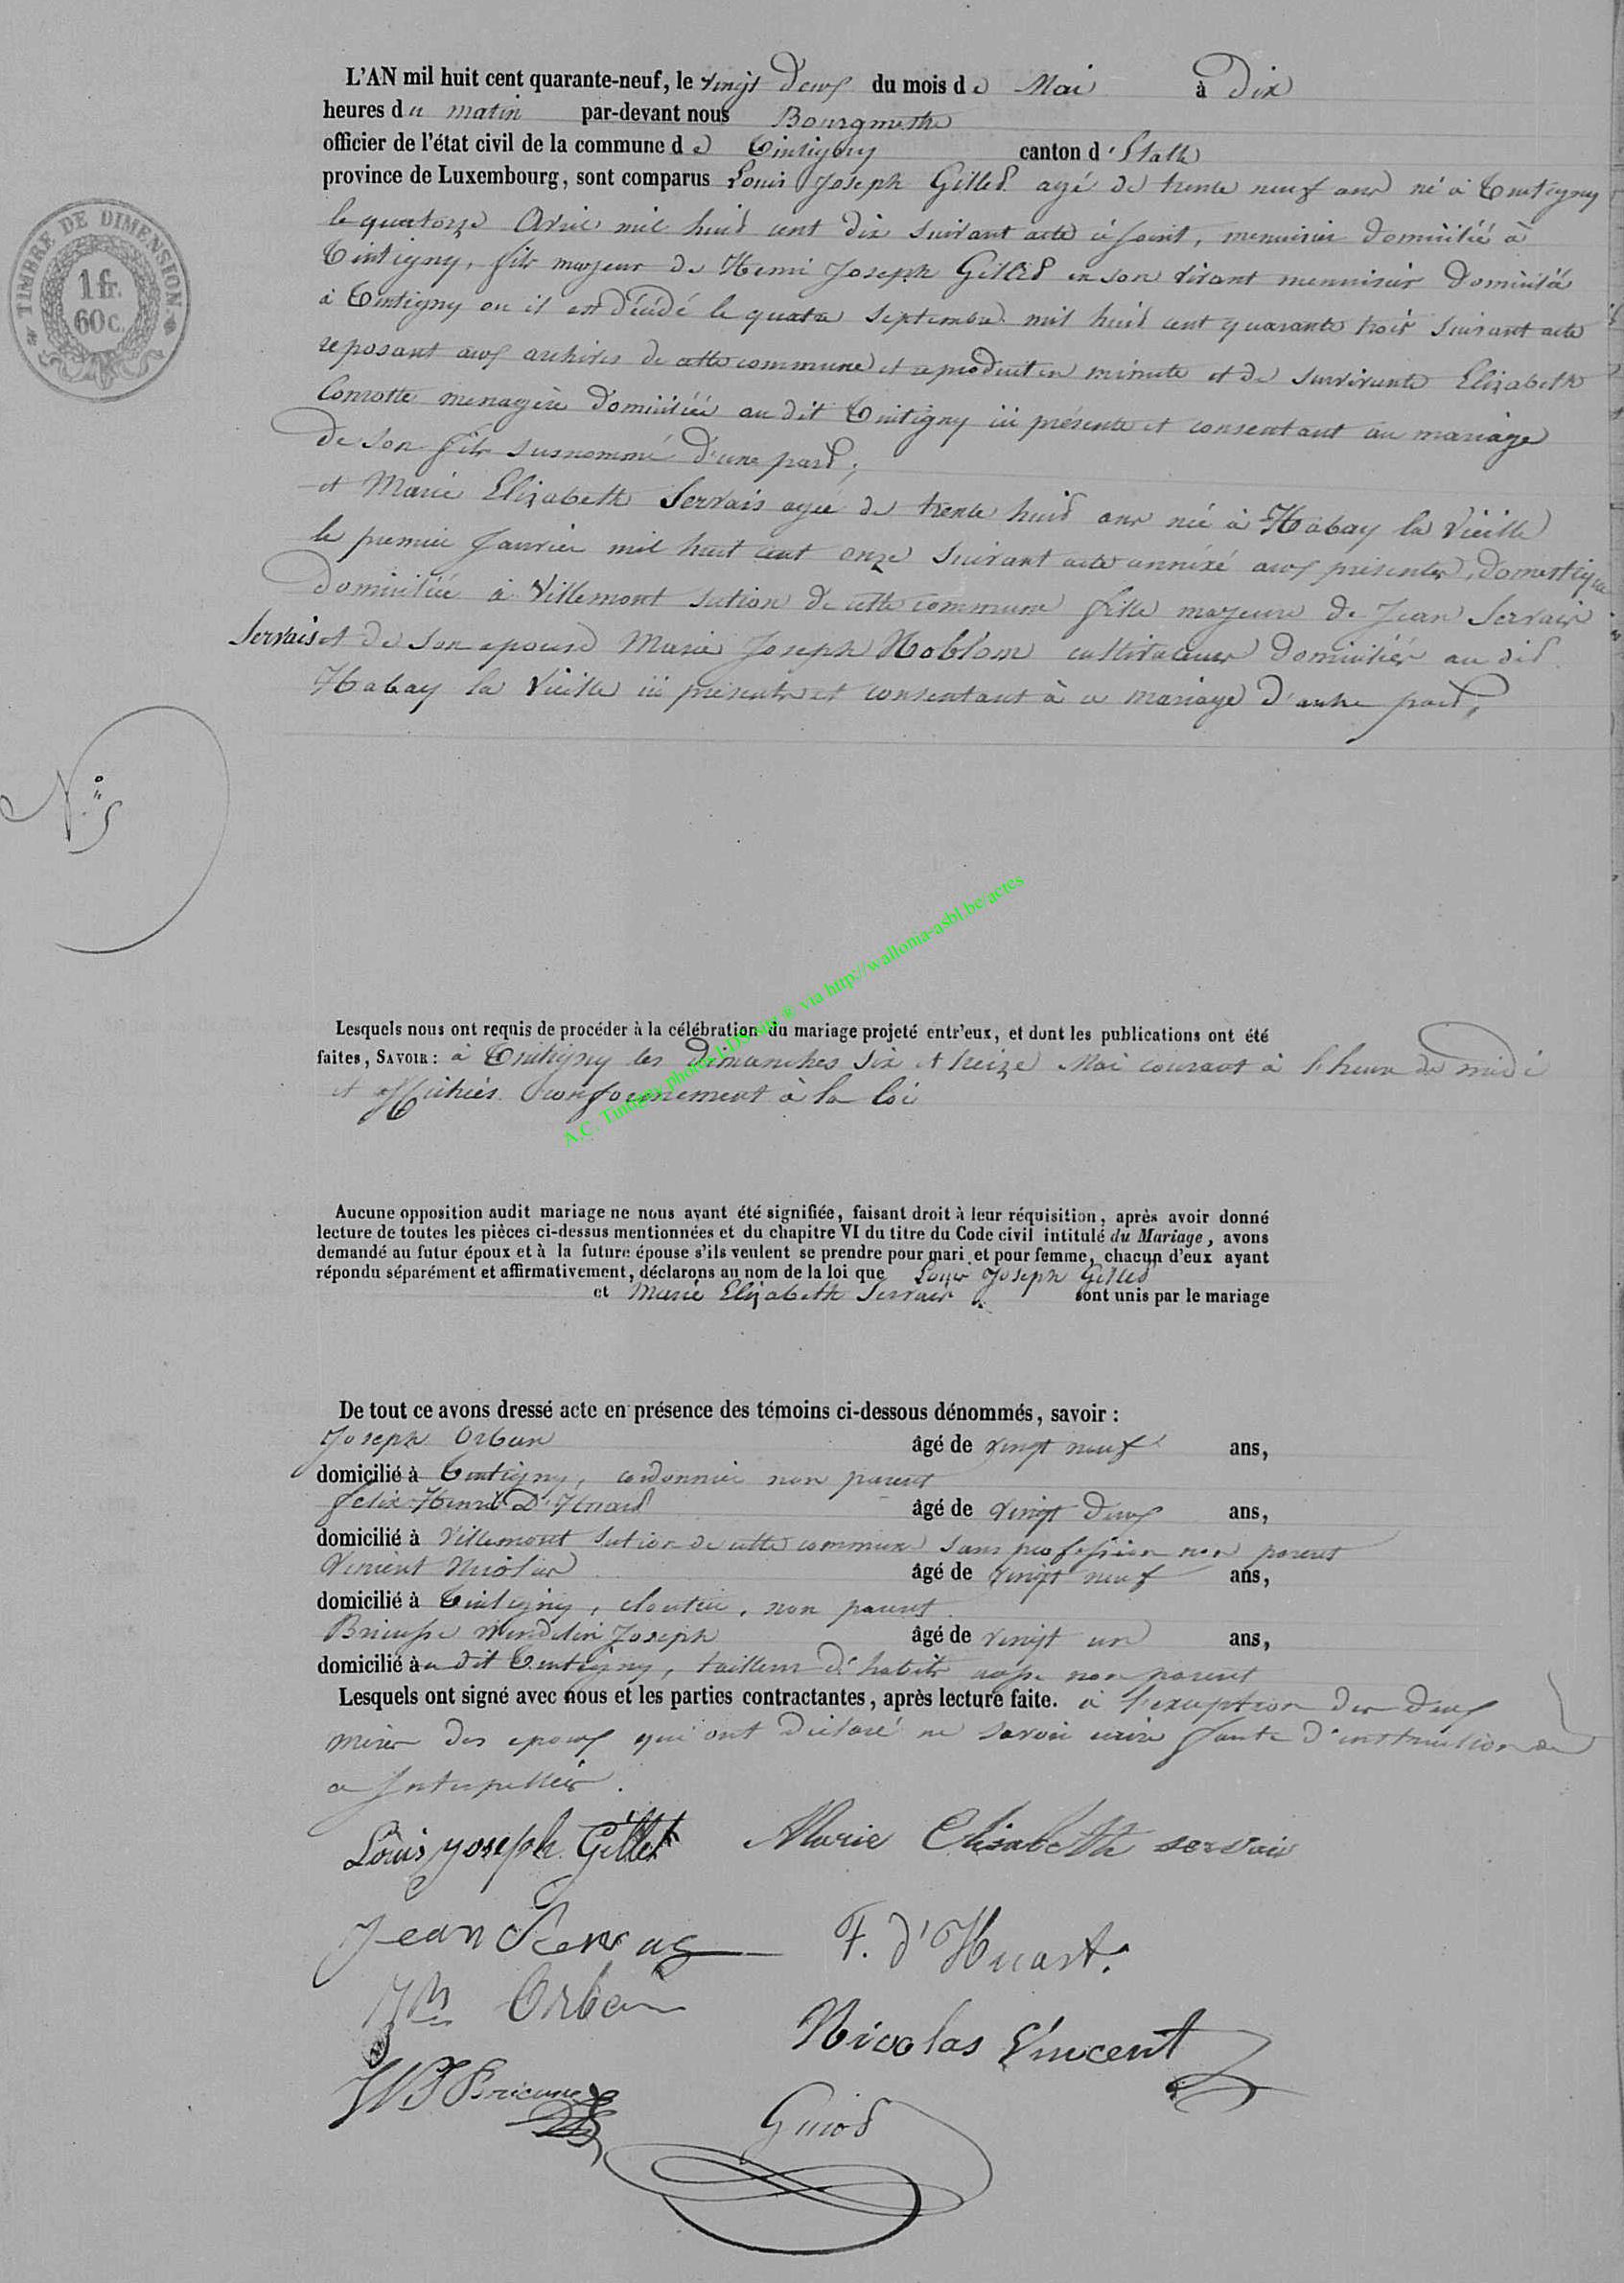 L'AN mil huit cent quarante-neuf, le vingt Deux du mois de Mai à Dix
heures du matin par-devant nous Bourgmestre
officier de l'état civil de la commune de Tintigny canton d'Etalle
province de Luxembourg, sont comparus Louis Joseph Gillet agé de trente neuf ans né à Tintigny
le quatorze Avril mil huit cent dix suivant acte ci joint, menuisier domicilié à
Tintigny, fils majeur de Henri Joseph Gillet en son vivant menuisier domicilié
à Tintigny ou il est décédé le quatre Septembre mil huit cent quarante trois suivant acte
reposant aux archives de cette commune et reproduit en minute et de survivante Elizabeth
Conrotte menagère domiciliée au dit Tintigny ici présente et consentant au mariage
de son fils susnommé d'une part;
et Marie Elizabeth Servais agée de trente huit ans née à Habay la Vieille
le premier Janvier mil huit cent onze suivant acte annéxé aux présentes, domestique
domiciliée à Villemont section de cette commune fille majeure de Jean Servais
Servais et de son epouse Marie Joseph Noblom cultivateurs domiciliés au dit
Habay la Vieille ici présents et consentant à ce mariage d'autre part,
N° 5
TIMBRE DE DIMENSION
1 fr.
60 c.
Lesquels nous ont requis de procéder à la célébration du mariage projeté entr'eux, et dont les publications ont été
faites, SAVOIR: à Tintigny les Dimanches six et treize Mai courant à l'heure de midi
et affichées conformement à la loi
A.C. Tintigny via http://wallonia-asbl.be/actes
Aucune opposition audit mariage ne nous ayant été signifiée, faisant droit à leur réquisition, après avoir donné
lecture de toutes les pièces ci-dessus mentionnées et du chapitre VI du titre du Code civil intitulé du Mariage, avons
demandé au futur époux et à la future épouse s'ils veulent se prendre pour mari et pour femme, chacun d'eux ayant
répondu séparément et affirmativement, déclarons au nom de la loi que Louis Joseph Gillet
et Marie Elizabeth Servais sont unis par le mariage
De tout ce avons dressé acte en présence des témoins ci-dessous dénommés, savoir:
Joseph Orban âgé de vingt neuf ans,
domicilié à Tintigny, cordonnier non parent
Felix Henri D'Huart âgé de vingt deux ans,
domicilié à Villemont section de cette commune sans profession non parent
Vincent Nicolas âgé de vingt neuf ans,
domicilié à Tintigny, cloutier, non parent
Wendelin Joseph âgé de vingt un ans,
domicilié au dit Tintigny, tailleur d'habits aussi non parent
Lesquels ont signé avec nous et les parties contractantes, après lecture faite. à l'exception des deux
mères des epoux qui ont déclaré ne savoir ecrire faute d'instruction de
ce Interpellées.
Louis joseph Gillet Marie Elisabeth servais
Jean Servais F. d'Huart.
Orban Nicolas Vincent